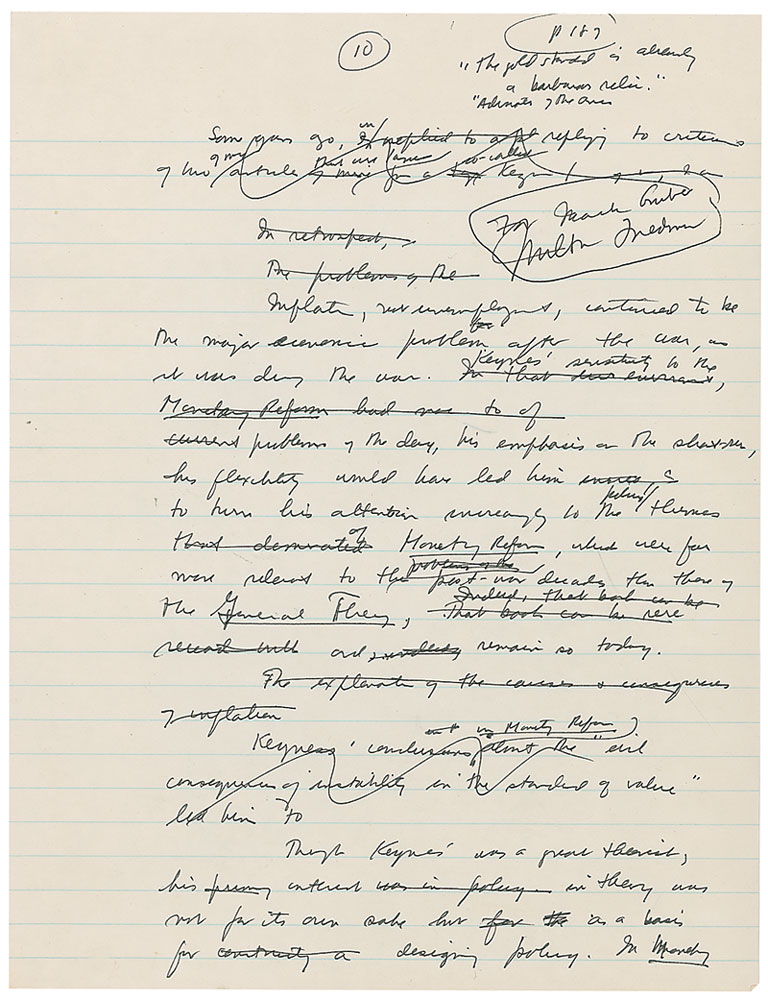 10
p 187
"the gold standard is already
a barbarous relic."
Some years ago, in replied to a replying to criticisms
of two of my articles for a so-called
For
Milton Friedman
In retrospect,
The problems of the
Inflation, not unemployment, continued to be
the major economic problem after the war, as
it was during the war. Keynes' sensitivity to the
In that
Monetary Reform had to of
current problems of the day, his emphasis on the short-run,
his flexibility would have led him
to turn his attention increasingly to the policy themes
that dominated of Monetary Reform, which were far
problems of the
more relevant to the post-war decades than those of
Indeed, that book can be
the General Theory, That book can be
reread with and remain so today.
The explanation of the causes & consequences
of inflation
in Monetary Reform
Keynes' conclusions about the "evil
consequences of instability in the standard of value"
led him to
Though Keynes' was a great theorist,
his interest was in policy in theory was
not for its own sake but for the as a basis
for constructing a designing policy. In Monetary